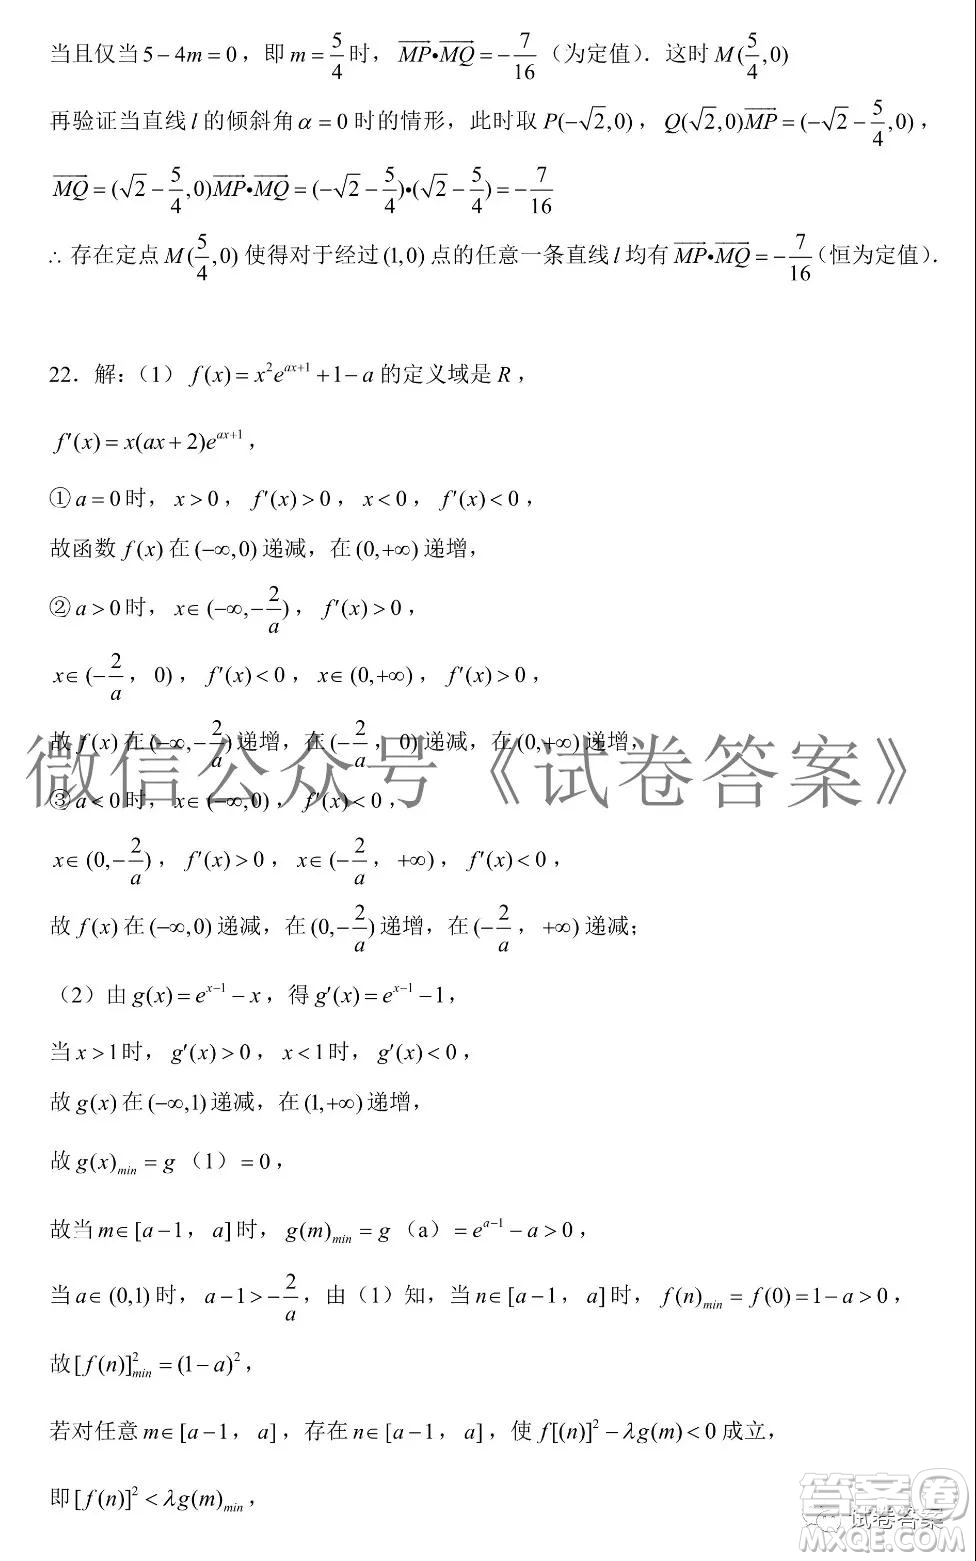 当且仅当 5-4m=0，即 m=5/4 时，MP•MQ=-7/16（为定值）．这时 M(5/4,0)
再验证当直线 l 的倾斜角 α=0 时的情形，此时取 P(-√2,0)，Q(√2,0)MP=(-√2-5/4,0)，
MQ=(√2-5/4,0)MP•MQ=(-√2-5/4)•(√2-5/4)=-7/16
∴ 存在定点 M(5/4,0) 使得对于经过 (1,0) 点的任意一条直线 l 均有 MP•MQ=-7/16（恒为定值）．
22．解：（1） f(x)=x²e^{ax+1}+1-a 的定义域是 R，
f′(x)=x(ax+2)e^{ax+1}，
①a=0 时，x>0，f′(x)>0，x<0，f′(x)<0，
故函数 f(x) 在 (-∞,0) 递减，在 (0,+∞) 递增，
②a>0 时，x∈(-∞,-2/a)，f′(x)>0，
x∈(-2/a，0)，f′(x)<0，x∈(0,+∞)，f′(x)>0，
故 f(x) 在 (-∞,-2/a) 递增，在 (-2/a，0) 递减，在 (0,+∞) 递增，
微信公众号《试卷答案》
③a<0 时，x∈(-∞,0)，f′(x)<0，
x∈(0,-2/a)，f′(x)>0，x∈(-2/a，+∞)，f′(x)<0，
故 f(x) 在 (-∞,0) 递减，在 (0,-2/a) 递增，在 (-2/a，+∞) 递减；
（2）由 g(x)=e^{x-1}-x，得 g′(x)=e^{x-1}-1，
当 x>1 时，g′(x)>0，x<1 时，g′(x)<0，
故 g(x) 在 (-∞,1) 递减，在 (1,+∞) 递增，
故 g(x)min=g（1）=0，
故当 m∈[a-1，a] 时，g(m)min=g（a）=e^{a-1}-a>0，
当 a∈(0,1) 时，a-1>-2/a，由（1）知，当 n∈[a-1，a] 时，f(n)min=f(0)=1-a>0，
故 [f(n)]²min=(1-a)²，
若对任意 m∈[a-1，a]，存在 n∈[a-1，a]，使 f[(n)]²-λg(m)<0 成立，
即 [f(n)]²<λg(m)min，
答案圈
试卷答案
MXQE.COM